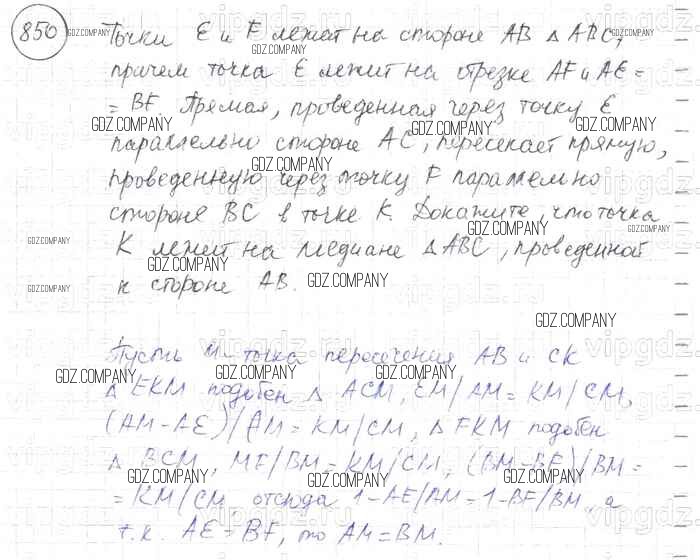 850 Точки E и F лежат на стороне AB △ ABC,
причем точка E лежит на отрезке AF и AE =
= BF. Прямая, проведенная через точку E
параллельно стороне AC, пересекает прямую,
проведенную через точку F параллельно
стороне BC в точке K. Докажите, что точка
K лежит на медиане △ABC, проведенной
к стороне AB.
Пусть M - точка пересечения AB и CK
△ EKM подобен △ ACM, EM/AM = KM/CM,
(AM-AE)/AM = KM/CM, △ FKM подобен
△ BCM, MF/BM = KM/CM, (BM-BF)/BM =
= KM/CM, отсюда 1-AE/AM = 1-BF/BM, а
т.к. AE = BF, то AM = BM.
GDZ.COMPANY
vipgdz.ru